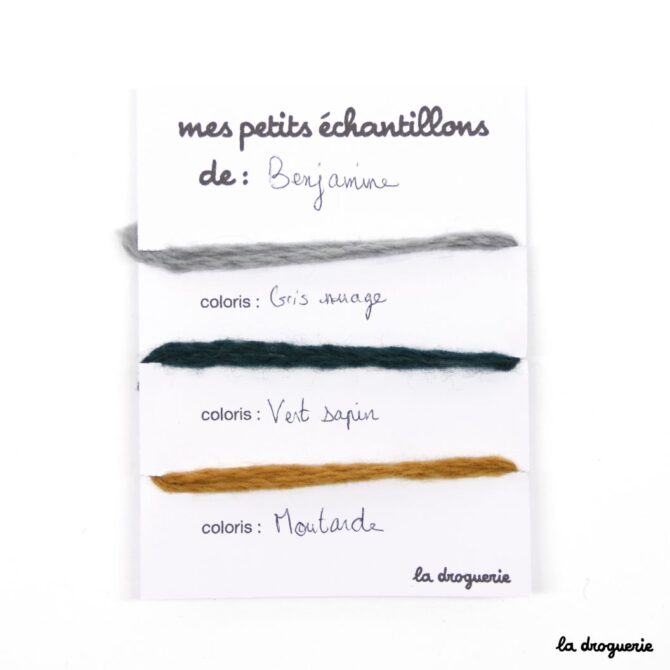 mes petits échantillons
de : Benjamine
coloris : Gris nuage
coloris : Vert sapin
coloris : Moutarde
la droguerie
la droguerie